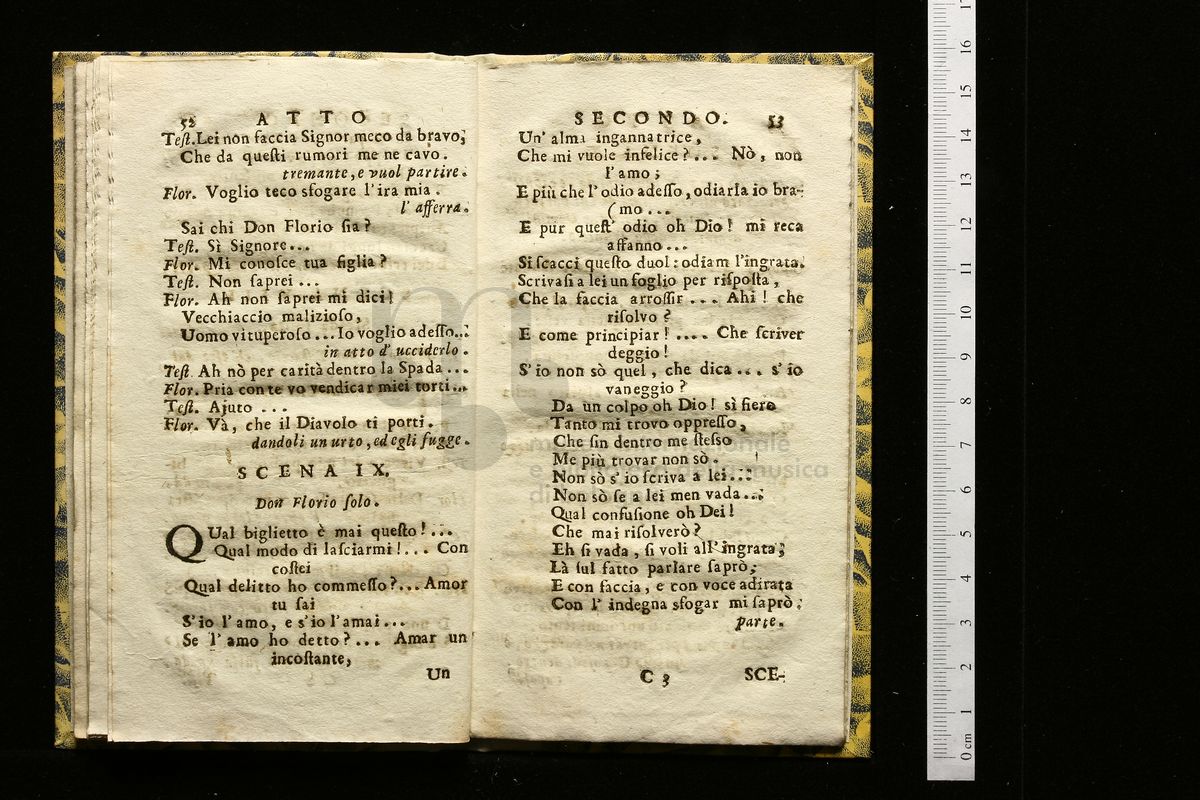 52 ATTO
Teſt. Lei non faccia Signor meco da bravo;
Che da queſti rumori me ne cavo.
tremante, e vuol partire.
Flor. Voglio teco sfogare l'ira mia.
l' afferra.
Sai chi Don Florio ſia?
Teſt. Sì Signore...
Flor. Mi conoſce tua figlia?
Teſt. Non ſaprei...
Flor. Ah non ſaprei mi dici!
Vecchiaccio malizioſo,
Uomo vituperoſo...Io voglio adeſſo...
in atto d' ucciderlo.
Teſt. Ah nò per carità dentro la Spada...
Flor. Pria con te vo vendicar miei torti...
Teſt. Ajuto...
Flor. Và, che il Diavolo ti porti.
dandoli un urto, ed egli fugge.
SCENA IX.
Don Florio ſolo.
QUal biglietto è mai queſto!...
Qual modo di laſciarmi!... Con
coſtei
Qual delitto ho commeſſo?... Amor
tu ſai
S'io l'amo, e s'io l'amai...
Se l'amo ho detto?... Amar un
incoſtante,
Un
SECONDO. 53
Un' alma ingannatrice,
Che mi vuole infelice?... Nò, non
l'amo;
E più che l'odio adeſſo, odiarla io bra-
(mo...
E pur queſt' odio oh Dio! mi reca
affanno...
Si ſcacci queſto duol: odiam l'ingrata.
Scrivaſi a lei un foglio per riſpoſta,
Che la faccia arroſſir... Ahi! che
riſolvo?
E come principiar!.... Che ſcriver
deggio!
S'io non sò quel, che dica... s'io
vaneggio?
Da un colpo oh Dio! sì fiero
Tanto mi trovo oppreſſo,
Che ſin dentro me ſteſso
Me più trovar non sò.
Non sò s'io ſcriva a lei...
Non sò ſe a lei men vada...
Qual confuſione oh Dei!
Che mai riſolverò?
Eh ſi vada, ſi voli all'ingrata;
Là ſul fatto parlare ſaprò;
E con faccia, e con voce adirata
Con l' indegna sfogar mi ſaprò;
parte.
C 3 SCE-
0 cm 1 2 3 4 5 6 7 8 9 10 11 12 13 14 15 16 17